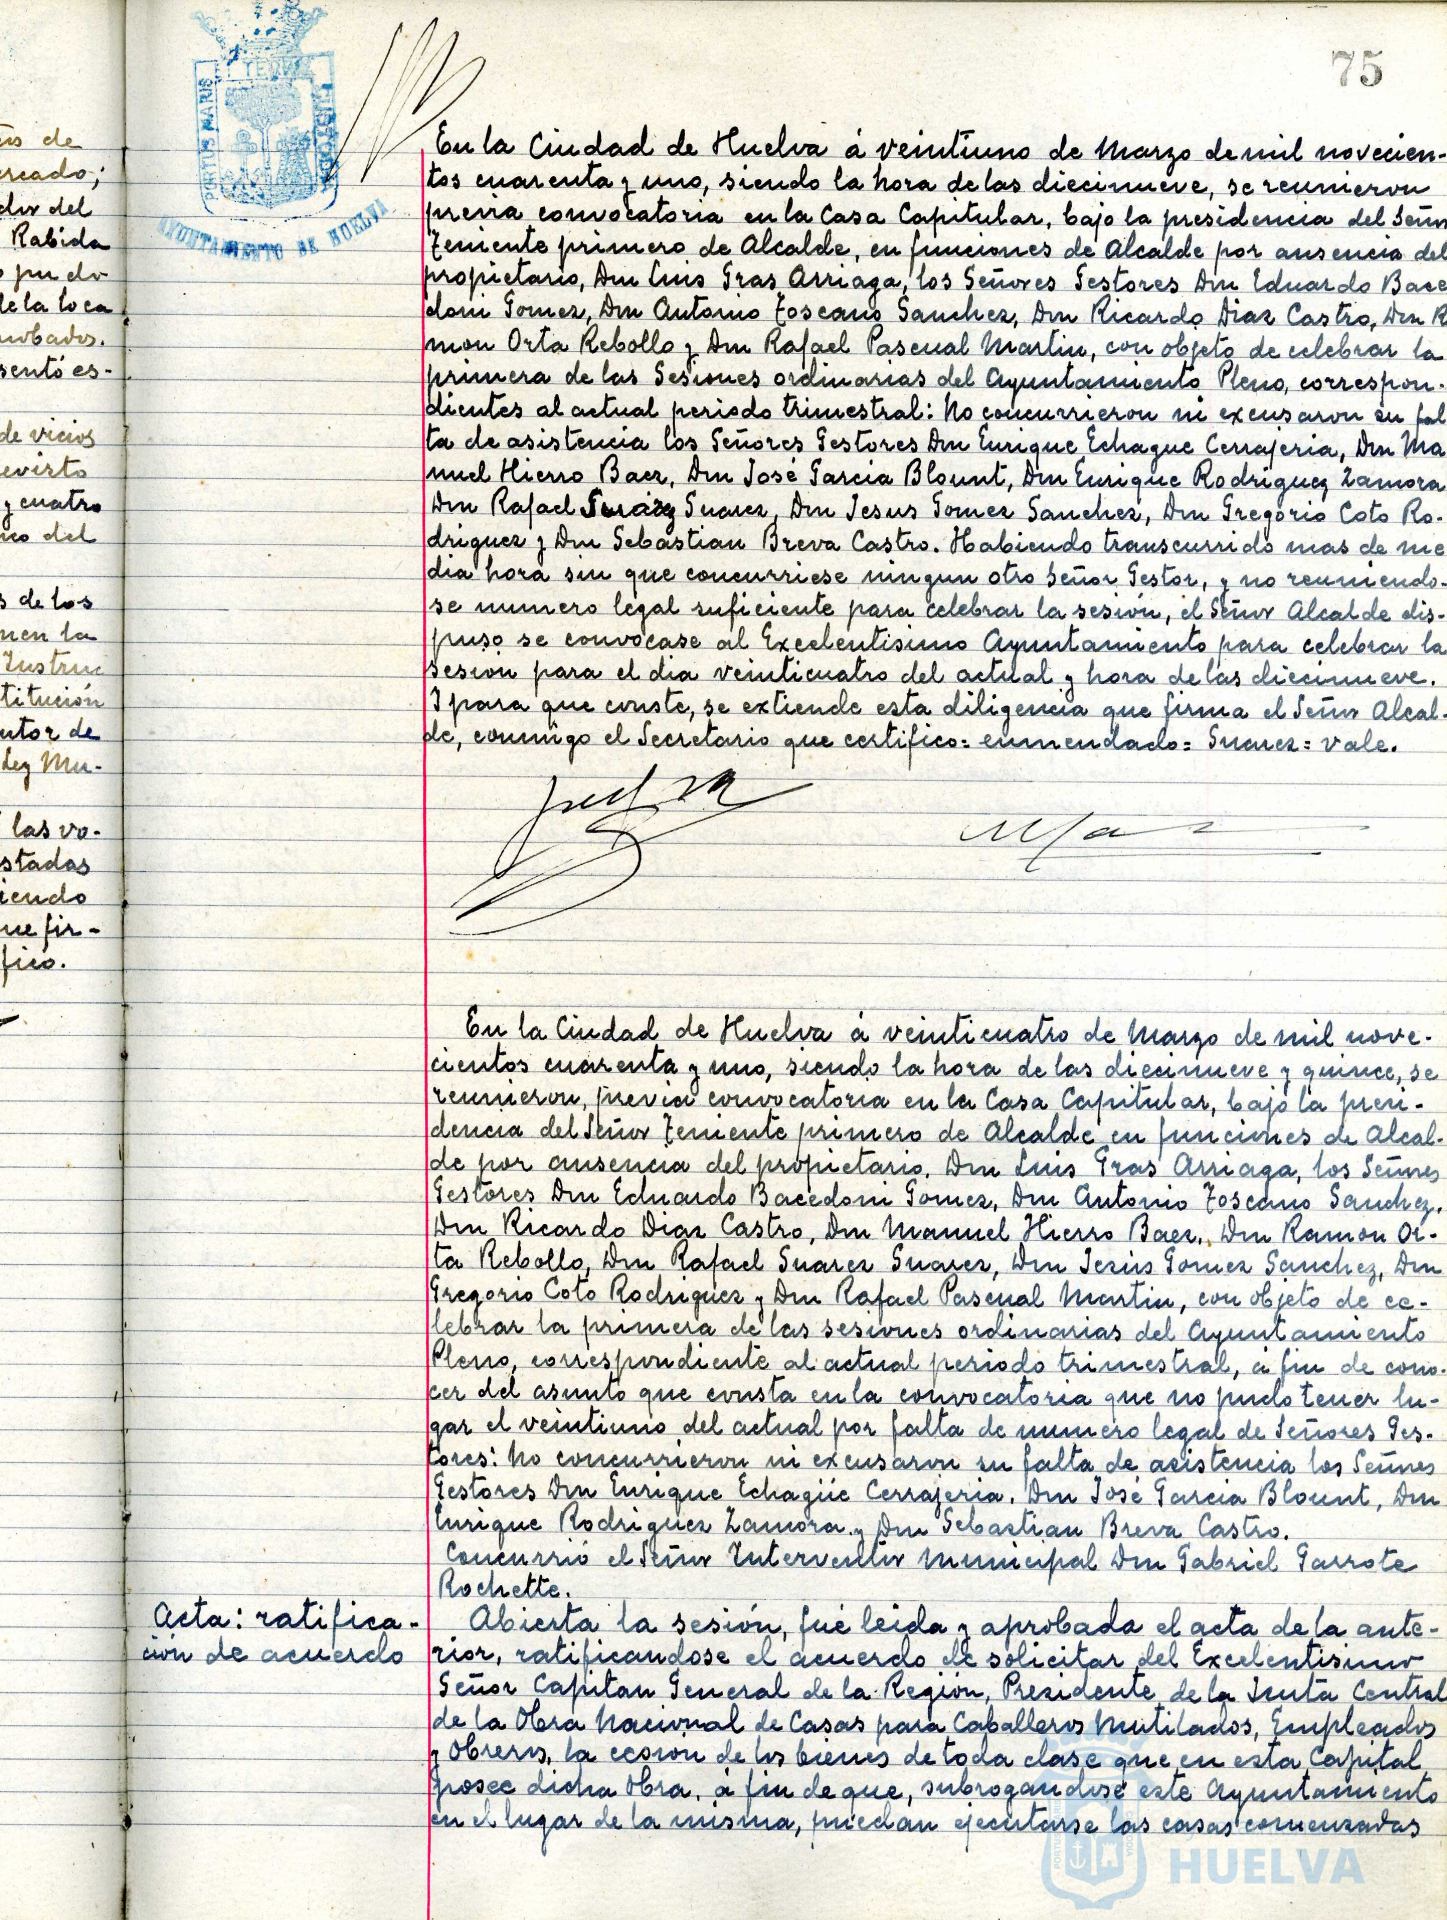 75
PORTUS MARIS
ET TERRAE
CUSTODIA
AYUNTAMIENTO DE HUELVA
En la Ciudad de Huelva á veintiuno de Marzo de mil novecien-
tos cuarenta y uno, siendo la hora de las diecinueve, se reunieron
previa convocatoria en la Casa Capitular, bajo la presidencia del Señor
Teniente primero de Alcalde, en funciones de Alcalde por ausencia del
propietario, Don Luis Gras Arriaga, los Señores Gestores Don Eduardo Bace
doni Gomez, Don Antonio Toscano Sanchez, Don Ricardo Diaz Castro, Don R
mon Orta Rebollo y Don Rafael Pascual Martin, con objeto de celebrar la
primera de las Sesiones ordinarias del Ayuntamiento Pleno, correspon-
dientes al actual periodo trimestral: No concurrieron ni excusaron su fal
ta de asistencia los Señores Gestores Don Enrique Echague Cerrajeria, Don Ma
nuel Hierro Baez, Don José Garcia Blount, Don Enrique Rodriguez Zamora
Don Rafael Suarez Suarez, Don Jesus Gomez Sanchez, Don Gregorio Coto Ro-
driguez y Don Sebastian Breva Castro. Habiendo transcurrido mas de me
dia hora sin que concurriese ningun otro Señor Gestor, y no reuniendo-
se numero legal suficiente para celebrar la sesión, el Señor Alcalde dis-
puso se convocase al Excelentisimo Ayuntamiento para celebrar la
sesion para el dia veinticuatro del actual y hora de las diecinueve.
I para que conste, se extiende esta diligencia que firma el Señor Alcal-
de, conmigo el Secretario que certifico= enmendado= Suarez= vale.
En la Ciudad de Huelva á veinticuatro de Marzo de mil nove-
cientos cuarenta y uno, siendo la hora de las diecinueve y quince, se
reunieron, previa convocatoria en la Casa Capitular, bajo la presi-
dencia del Señor Teniente primero de Alcalde en funciones de Alcal-
de por ausencia del propietario, Don Luis Gras Arriaga, los Señores
Gestores Don Eduardo Bacedoni Gomez, Don Antonio Toscano Sanchez,
Don Ricardo Diaz Castro, Don Manuel Hierro Baez, Don Ramon Or-
ta Rebollo, Don Rafael Suarez Suarez, Don Jesús Gomez Sanchez, Don
Gregorio Coto Rodriguez y Don Rafael Pascual Martin, con objeto de ce-
lebrar la primera de las sesiones ordinarias del Ayuntamiento
Pleno, correspondiente al actual periodo trimestral, á fin de cono-
cer del asunto que consta en la convocatoria que no pudo tener lu-
gar el veintiuno del actual por falta de numero legal de Señores Ges-
tores: No concurrieron ni excusaron su falta de asistencia los Señores
Gestores Don Enrique Echagüe Cerrajeria, Don José Garcia Blount, Don
Enrique Rodriguez Zamora y Don Sebastian Breva Castro.
Concurrió el Señor Interventor Municipal Don Gabriel Garrote
Rochette.
Acta: ratifica-
ción de acuerdo
Abierta la sesión, fué leida y aprobada el acta de la ante-
rior, ratificandose el acuerdo de solicitar del Excelentisimo
Señor Capitan General de la Región, Presidente de la Junta Central
de la Obra Nacional de Casas para Caballeros Mutilados, Empleados
y Obreros, la cesion de los bienes de toda clase que en esta Capital
posee dicha Obra, á fin de que, subrogandose este Ayuntamiento
en el lugar de la misma, puedan ejecutarse las casas comenzadas
HUELVA
de
ercado;
dor del
Rabida
pudo
de la loca
robados.
sentó es-
de vicios
revisto
y cuatro
ico del
s de los
men la
Instruc
titución
utor de
Ley Mu-
las vo-
stadas
iendo
ue fir-
fico.